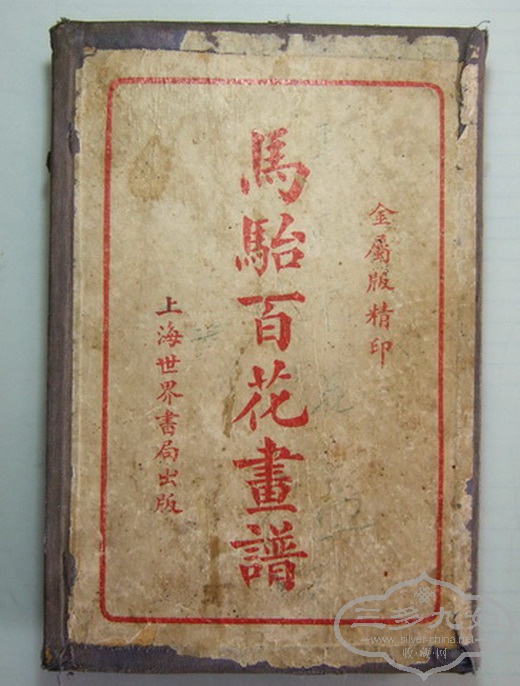 金屬版精印
馬駘百花畫譜
上海世界書局出版
三多九如
www.silver-china.net
收藏网